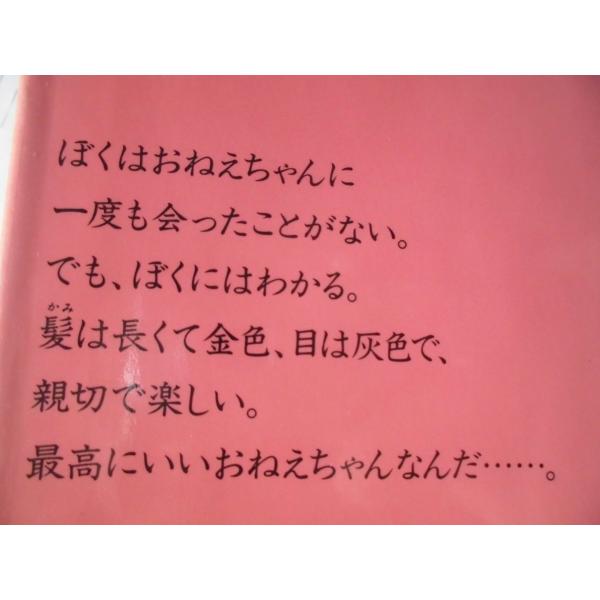 ぼくはおねえちゃんに
一度も会ったことがない。
でも、ぼくにはわかる。
かみ
髪は長くて金色、目は灰色で、
親切で楽しい。
最高にいいおねえちゃんなんだ……。